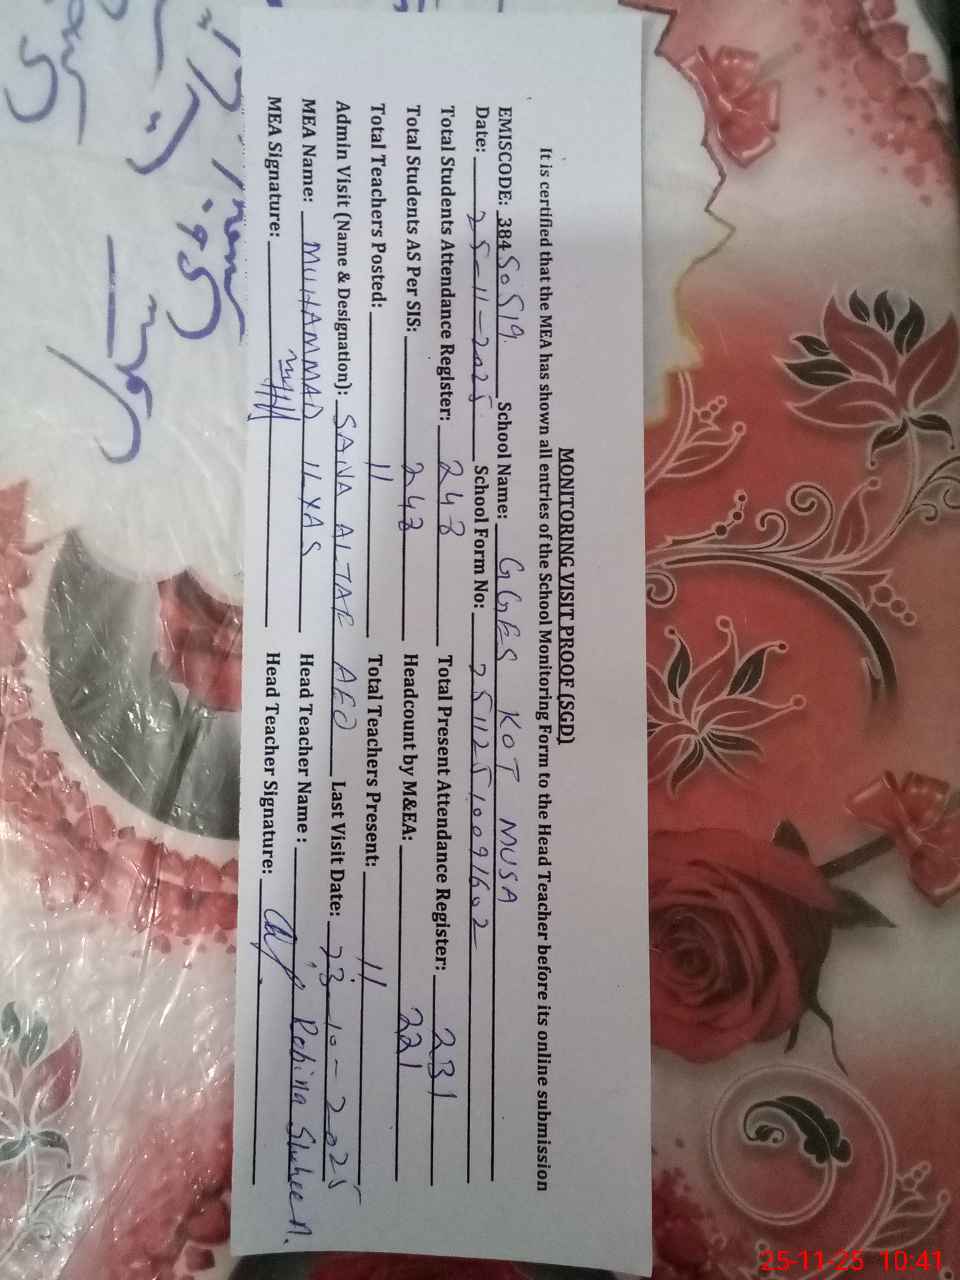 MONITORING VISIT PROOF (SGD)
It is certified that the MEA has shown all entries of the School Monitoring Form to the Head Teacher before its online submission
EMISCODE: 38450519 School Name: GGES KOT MUSA
Date: 25-11-2025 School Form No: 25112510091602
Total Students Attendance Register: 243 Total Present Attendance Register: 231
Total Students AS Per SIS: 243 Headcount by M&EA: 221
Total Teachers Posted: 11 Total Teachers Present: 11
Admin Visit (Name & Designation): SANA ALTAF AEO Last Visit Date: 23-10-2025
MEA Name: MUHAMMAD ILYAS Head Teacher Name : Robina
MEA Signature: Head Teacher Signature:
25-11-25 10:41